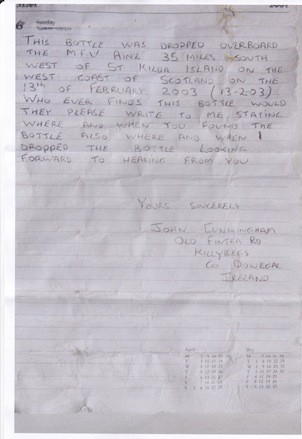 THIS BOTTLE WAS DROPPED OVERBOARD
THE M.F.V 35 MILES SOUTH
WEST OF ST KILDA ISLAND ON THE
WEST COAST OF SCOTLAND ON THE
13TH OF FEBRUARY 2003 (13-2-03)
WHO EVER FINDS THIS BOTTLE WOULD
THEY PLEASE WRITE TO ME STATING
WHERE AND WHEN YOU FOUND THE
BOTTLE ALSO WHERE AND WHEN I
DROPPED THE BOTTLE LOOKING
FORWARD TO HEARING FROM YOU
YOURS SINCERELY
JOHN CUNNINGHAM
OLD FINTRA RD
KILLYBEGS
CO DONEGAL
IRELAND